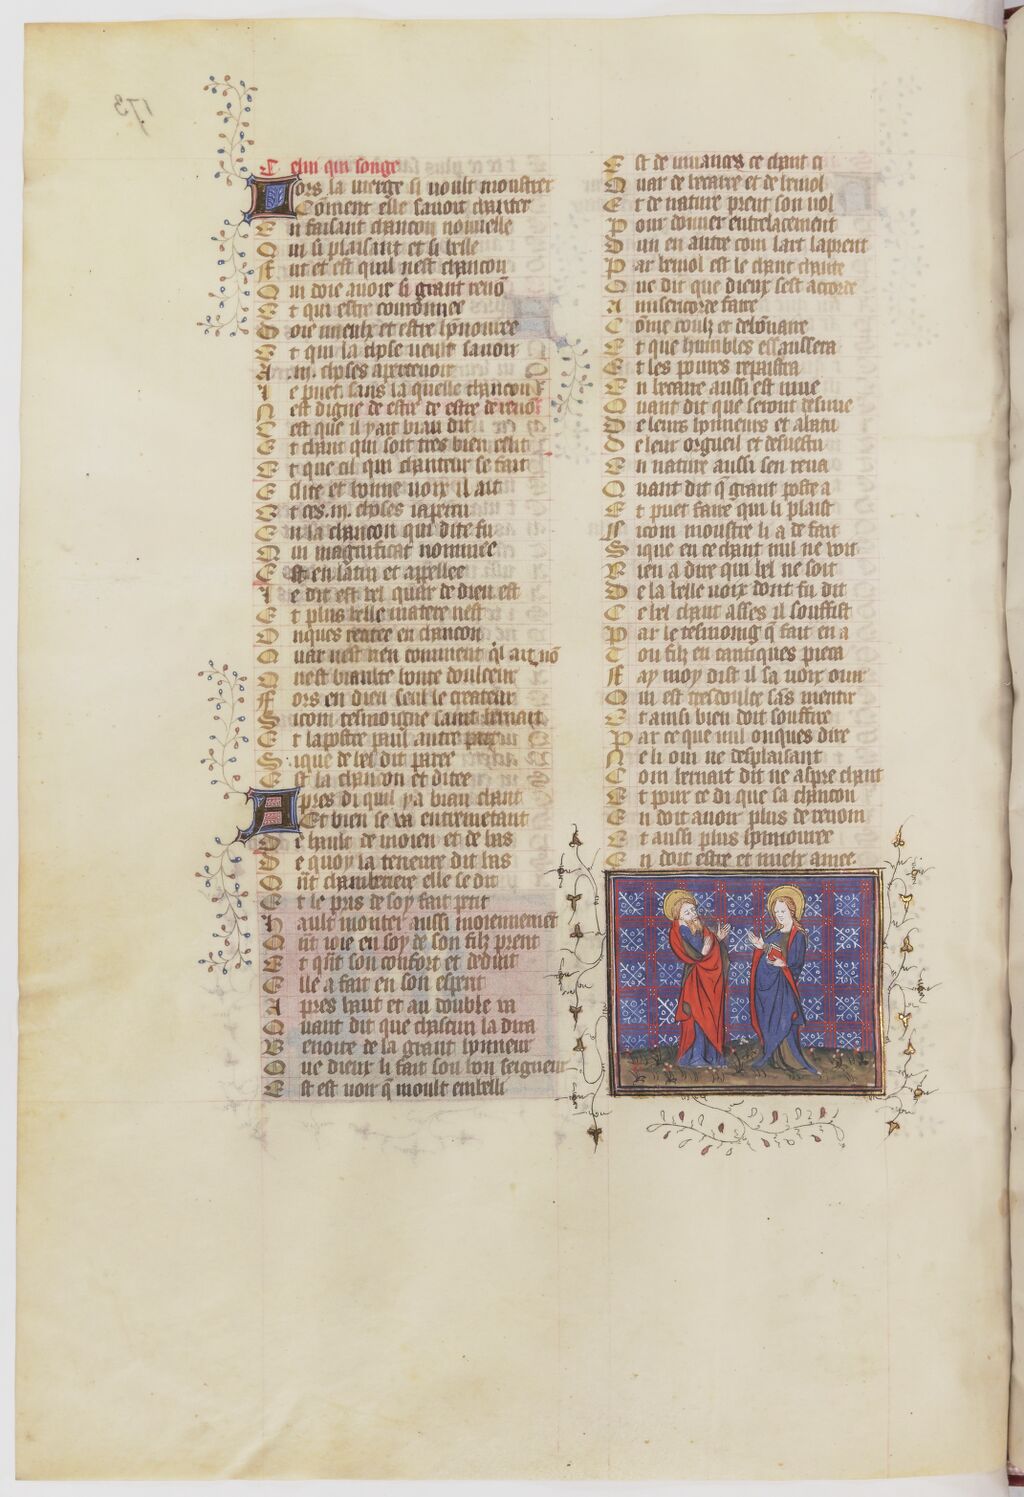 173
Celui qui songe
Lors la vierge si voult monstrer
Coment elle savoit chanter
En faisant chancon nouvelle
Qui si plaisant et si belle
Fut et est quil nest chancon
Qui doie avoir si grant renō
Et qui estre couronnee
Doie mieulx et estre hōnouree
Et qui la chose veult savoir
A .iii. choses apercevoir
Le puet sans la quelle chancon
Nest digne de estre de estre de renō
Cest que il yait biau dit
Et chant qui soit tres bien eslit
Et que cil qui chanteur se fait
Eslite et bonne voix il ait
Et ces .iii. choses iapercu
En la chancon qui dite fu
Qui magnificat nommee
Est en latin et appellee
Le dit est bel quar de dieu est
Et plus belle matere nest
Onques rentee en chancon
Quar nest rien comment ql ait nō
Nest biaulte bonte doulceur
Fors en dieu seul le createur
Sicom tesmoigne saint bernart
Et lapostre paul autre part
Sique de bel dit paree
Est la chancon et ditee
Apres di quil ya biau chant
Et bien se va entremetant
De hault de moien et de bas
De quoy la teneure dit bas
Qnt chamberiere elle se dit
Et le pris de soy fait petit
Hault monter aussi moiennement
Qnt ioie en soy de son filz prent
Et qnt son confort et deduit
Elle a fait en son esperit
Apres hault et au double va
Quant dit que chascun la dira
Benoite de la grant honneur
Que dieux li fait son bon seigneur
Est est voir q moult embelli
Est de muances ce chant ci
Quar de becarre et de bemol
Et de nature prent son vol
Pour donner entrelacement
Dun en autre com lart laprent
Par bemol est le chant chante
Que dit que dieux sest acorde
A misericorde faire
Cōme doulz et debōnaire
Et que humbles essaussera
Et les poures repaistra
En becarre aussi est mue
Quant dit que seront desnue
De leurs honneurs et abatu
De leur orgueil et desvestu
En nature aussi sen reva
Quant dit q grant poste a
Et puet faire qui li plaist
Sicom monstre li a de fait
Sique en ce chant nul ne voit
Rien a dire qui bel ne soit
De la belle voix dont fu dit
Ce bel chant asses il souffist
Par le tesmoing q fait en a
Tou filz en cantiques pieca
Fay moy dist il sa voix ouir
Qui est tresdoulce sās mentir
Et ainsi bien doit souffire
Par ce que nul onques dire
Ne li oui ne desplaisant
Com bernart dit ne aspre chant
Et pour ce di que sa chancon
En doit avoir plus de renom
Et aussi plus honnouree
En doit estre et mielx amee.